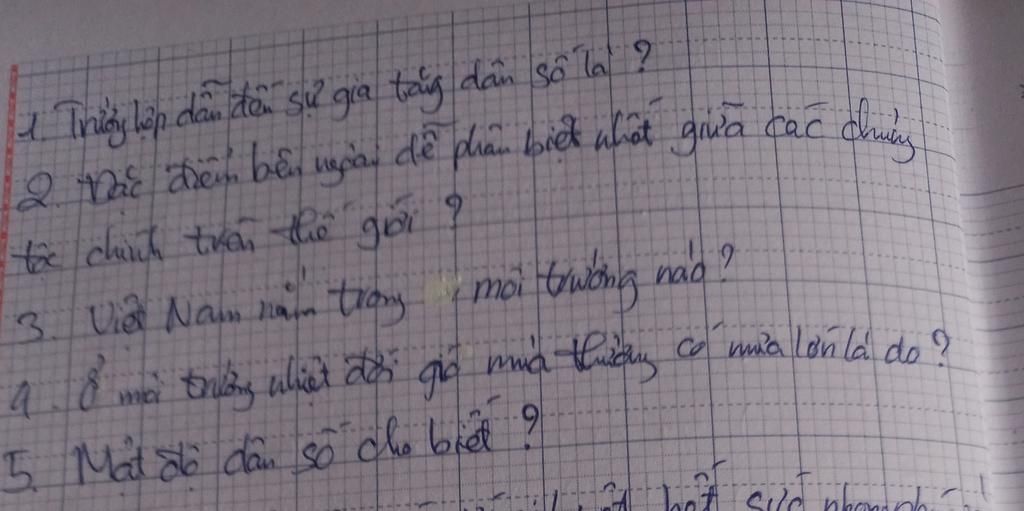 1. Trường hợp dẫn đến sự gia tăng dân số là ?
2. Đặc điểm bên ngoài dễ phân biệt nhất giữa các chủng
tộc chính trên thế giới ?
3. Việt Nam nằm trong môi trường nào ?
4. Ở môi trường nhiệt đới gió mùa thường có mưa lớn là do ?
5. Mật độ dân số cho biết ?